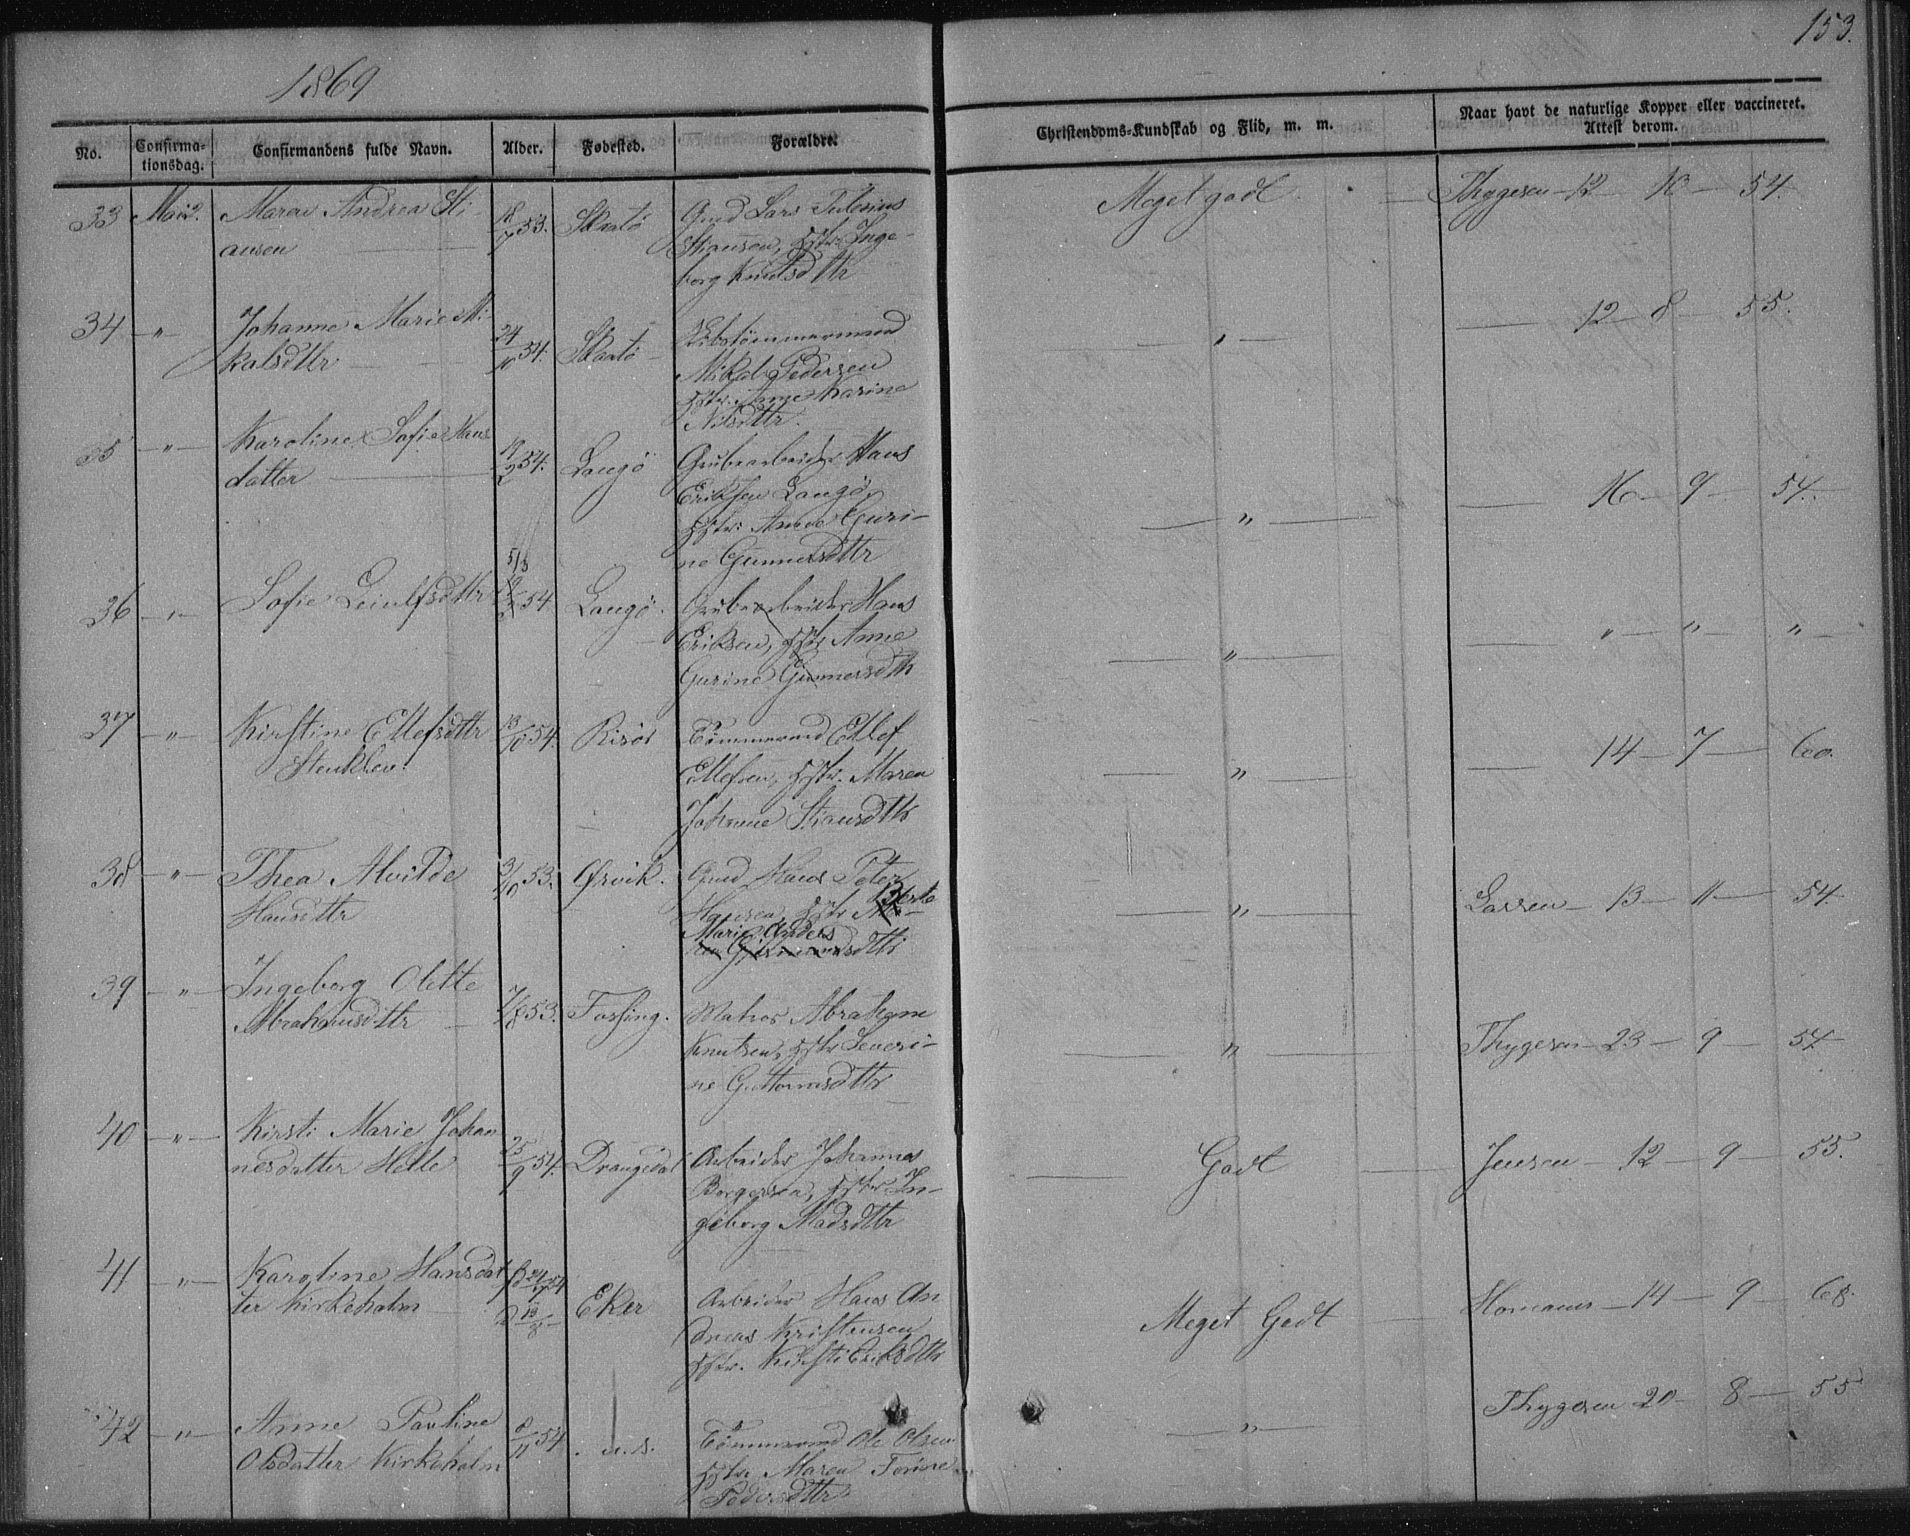 153.
1869
No.
Confirma-
tionsdag.
Confirmandens fulde Navn.
Alder.
Fødested.
Forældre.
Christendoms-Kundskab og Flid, m. m.
Naar havt de naturlige Kopper eller vaccineret.
Attest derom.
33 Mai 2. Maren Andrea Sti-
ansen
18/7 53. Skaatö
Gmd Lars Julius
Stiansen, Hstr Inge-
borg Knutsdtr
Meget godt
Thygesen - 12 10 - 54.
34 - " Johanne Marie Mi-
kalsdtr
24/10 54. Skaatö
Skibstømmermand
Mikal Pedersen
Hstr. Anne Karine
Nilsdtr.
"
12 - 8 - 55.
35 - " - Karoline Sofie Hans
datter
19/2 54. Langö
Grubearbeider Hans
Eriksen Langö,
Hstr: Anne Guri-
ne Gunnersdtr
"
16 - 9 - 54.
36 - " - Sofie Leiulfsdttr
5/8
54 Langö.
Grubearbeider Hans
Eriksen, Hstr Anne
Gurine Gunnersdtr
"
" - " - "
37 - " - Kirstine Ellefsdttr
Stenklev.
13/10 54. Risör
Tömmermd Ellef
Ellefsen, Hstr. Maren
Johanne Stiansdtr
"
14 - 7 - 60.
38 - " - Thea Alvilde
Hansdtr
3/10 53. Ørvik.
Gmd Hans Peter
Hansen, Hstr Berte
Marie Anders
dtr
"
Larsen - 13 - 11 - 54.
39 - " - Ingeborg Olette
Abrahamsdtr
7/8 53. Fossing.
Matros Abraham
Knutsen, Hstr Severi-
ne Guttormsdtr
"
Thygesen - 23 - 9 - 54.
40 - " - Kirsti Marie Johan
nesdatter Helle
25/9 54. Drangedal
Arbeider Johannes
Borgersen, Hstr In-
geborg Madsdttr
Godt
Jensen - 12 - 9 - 55.
41 - " - Karoline Hansdat
ter Kirkeholm
Eker
Arbeider Hans An
dreas Kristensen
Hstr. Kirsti Eriksdtr
Meget Godt
Homann - 14 - 9 - 68.
42 - " - Anne Pauline
Olsdatter Kirkeholm
8/11 54
Tömmermd Ole Olsen
Hstr Maren Torine
Pedersdtr
"
Thygesen 20 - 8 - 55